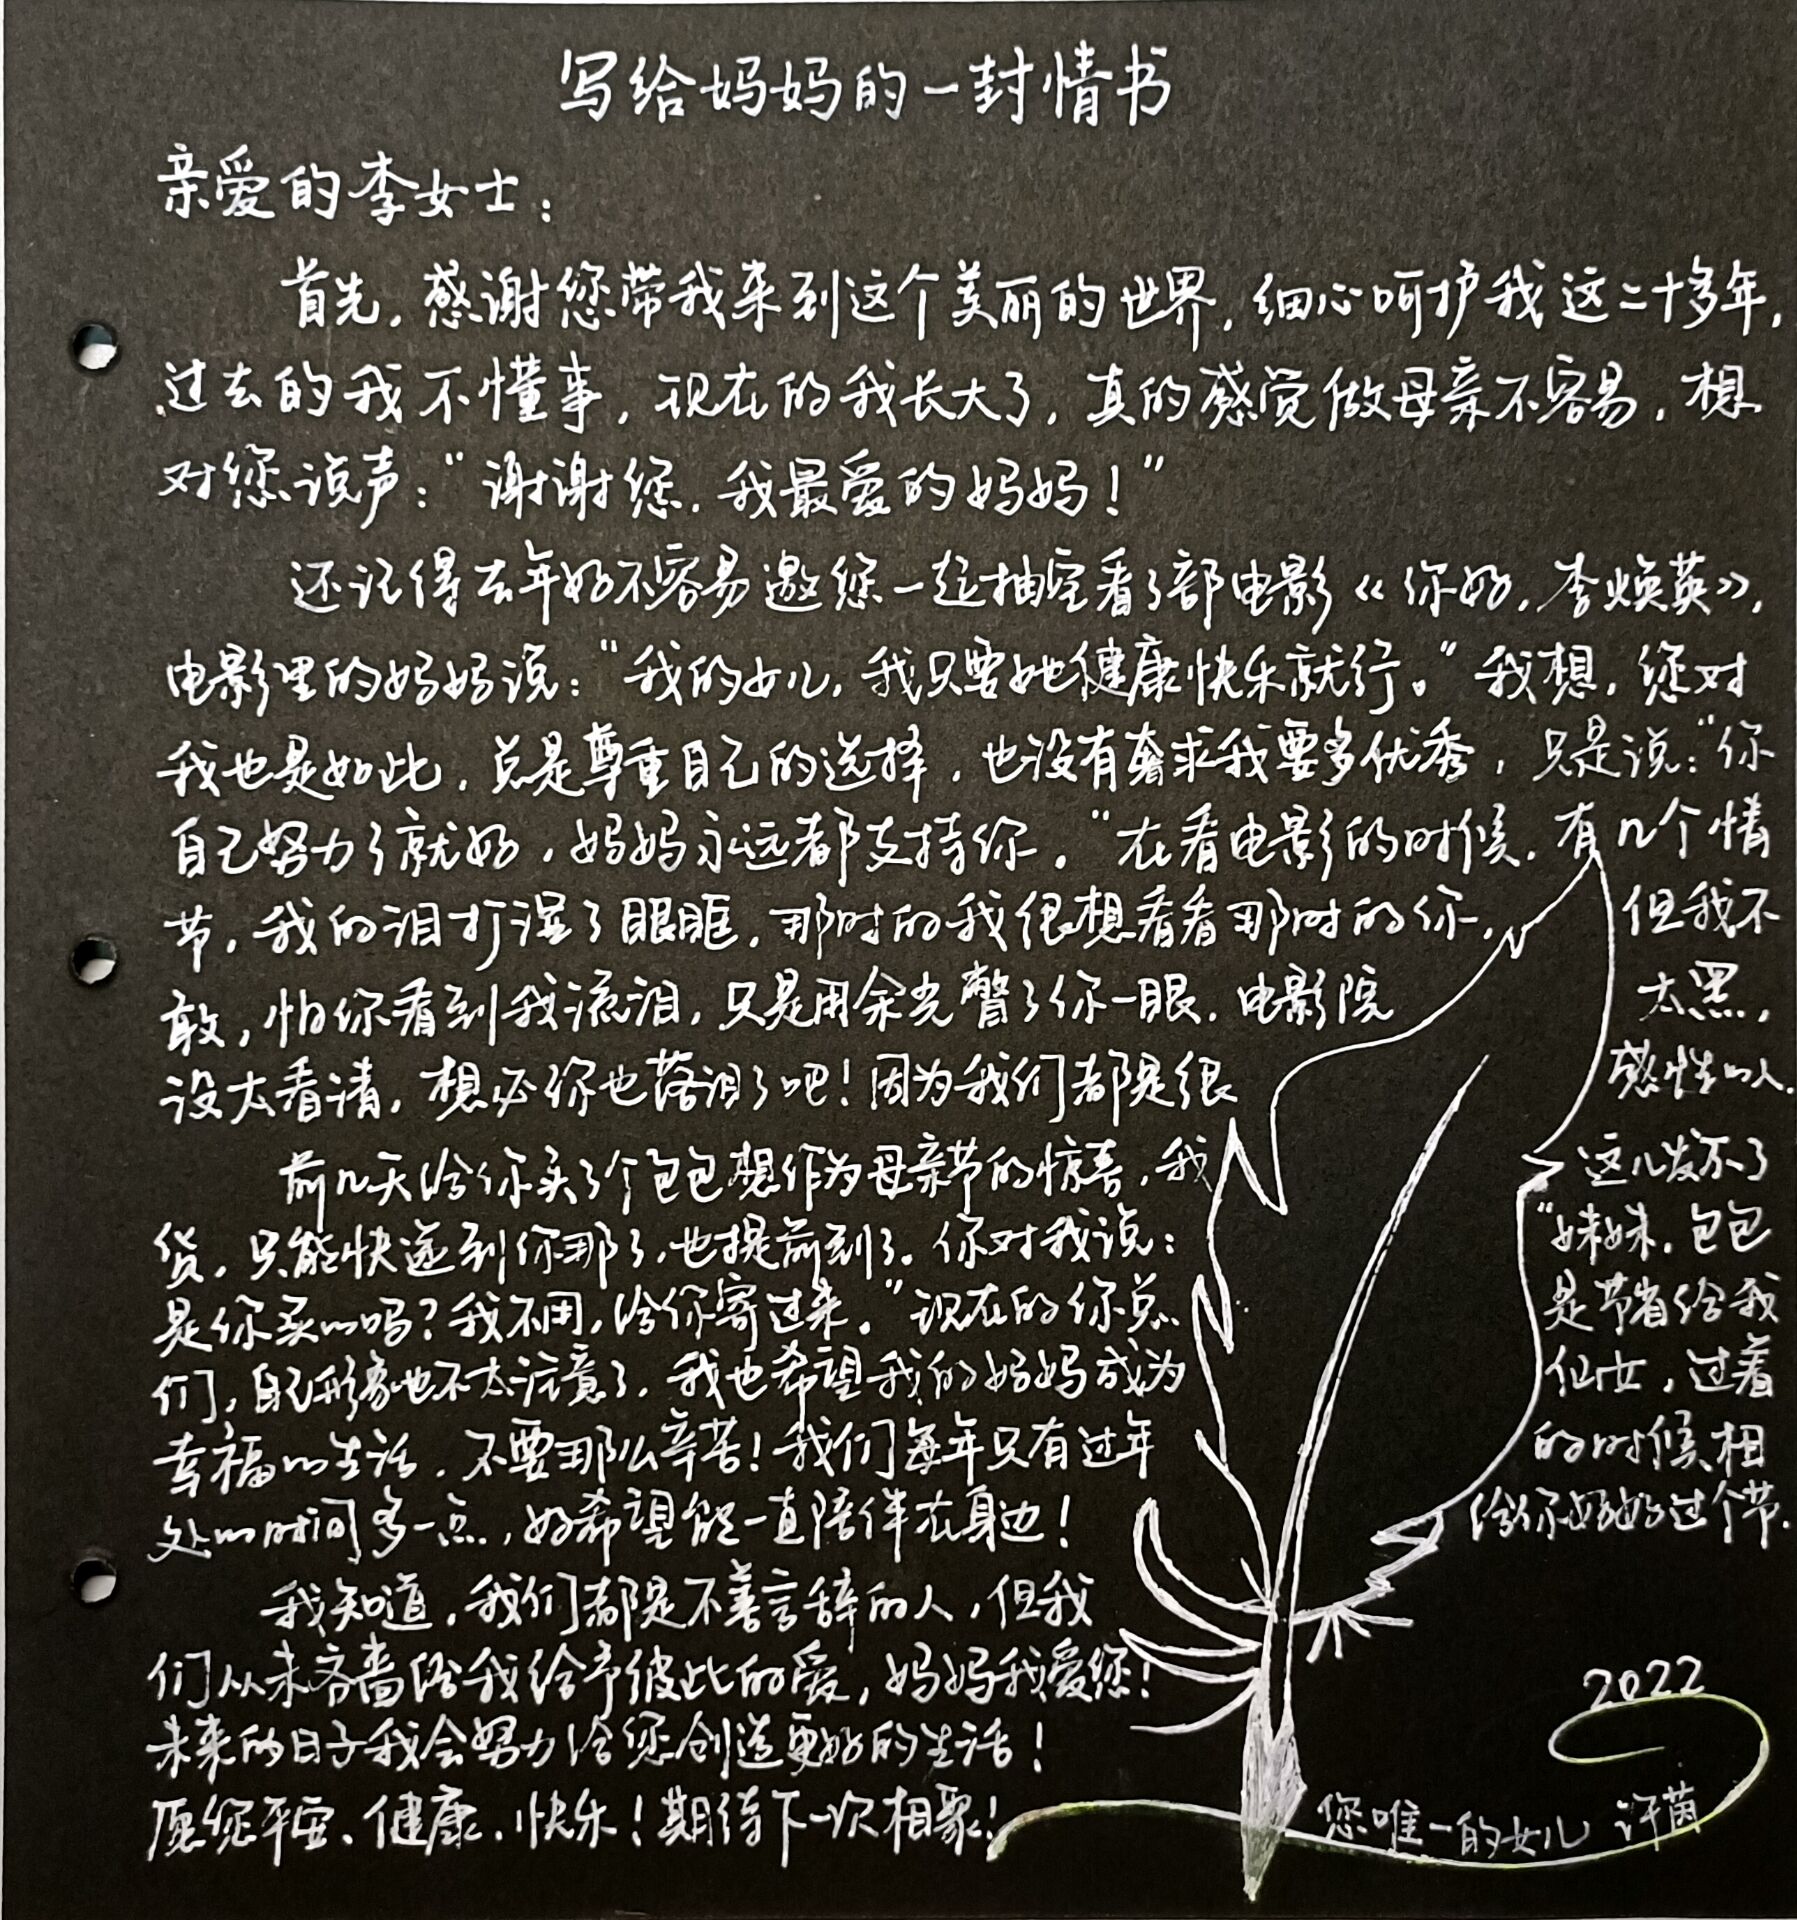 写给妈妈的一封情书
亲爱的李女士：
首先，感谢您带我来到这个美丽的世界，细心呵护我这二十多年，
过去的我不懂事，现在的我长大了，真的感觉做母亲不容易，想
对您说声：“谢谢您，我最爱的妈妈！”
还记得去年好不容易邀您一起抽空看了部电影《你好，李焕英》，
电影里的妈妈说：“我的女儿，我只要她健康快乐就行。”我想，您对
我也是如此，总是尊重自己的选择，也没有奢求我要多优秀，只是说：“你
自己努力了就好，妈妈永远都支持你。”在看电影的时候，有几个情
节，我的泪打湿了眼眶，那时的我很想看看那时的你，但我不
敢，怕你看到我流泪，只是用余光瞥了你一眼，电影院太黑，
没太看清，想必你也落泪了吧！因为我们都是很感性的人.
前几天给你买了个包包想作为母亲节的惊喜，我这儿发不了
货，只能快递到你那了，也提前到了。你对我说：“妹妹，包包
是你买的吗？我不用，给你寄过来。”现在的你总是节省给我
们，自己形象也不太注意了，我也希望我的妈妈成为仙女，过着
幸福的生活，不要那么辛苦！我们每年只有过年的时候相
处的时间多一点，好希望能一直陪伴在身边！给你好好过个节.
我知道，我们都是不善言辞的人，但我
们从未吝啬给我给予彼此的爱，妈妈我爱您！
未来的日子我会努力给您创造更好的生活！
愿您平安、健康、快乐！期待下一次相聚！
2022
您唯一的女儿 许茵